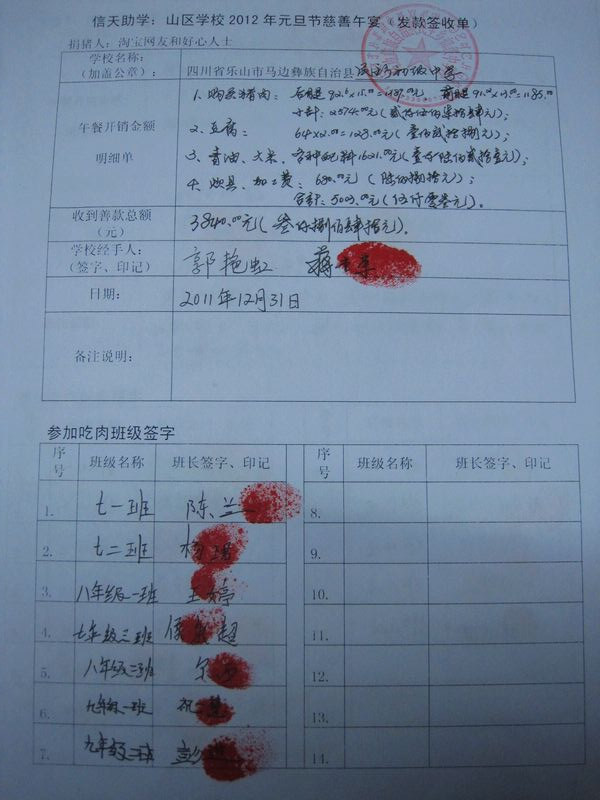 信天助学：山区学校2012年元旦节慈善午宴（发款签收单）
捐猪人：淘宝网友和好心人士
学校名称：
（加盖公章）：
四川省乐山市马边彝族自治县 初级中学
午餐开销金额
明细单
1、购买猪肉：
小计：2574.00元（贰仟伍佰柒拾肆元）；
2、豆腐： 64×2.00=128.00元（壹佰贰拾捌元）；
3、青油、大米、各种配料1621.00元（壹仟陆佰贰拾壹元）；
4、炊具、加工费：680.00元（陆佰捌拾元）；
合计：5003.00元（伍仟零叁元）。
收到善款总额
（元）
3840.00元（叁仟捌佰肆拾元）。
学校经手人：
（签字、印记）
郭艳虹 蒋
日期：
2011年12月31日
备注说明：
参加吃肉班级签字
序号 班级名称 班长签字、印记 序号 班级名称 班长签字、印记
1. 七一班 陈兰 8.
2. 七二班 杨 9.
3. 八年级一班 王婷 10.
4. 七年级三班 超 11.
5. 八年级二班 12.
6. 九年级一班 祝 慧 13.
7. 九年级二班 彭 14.